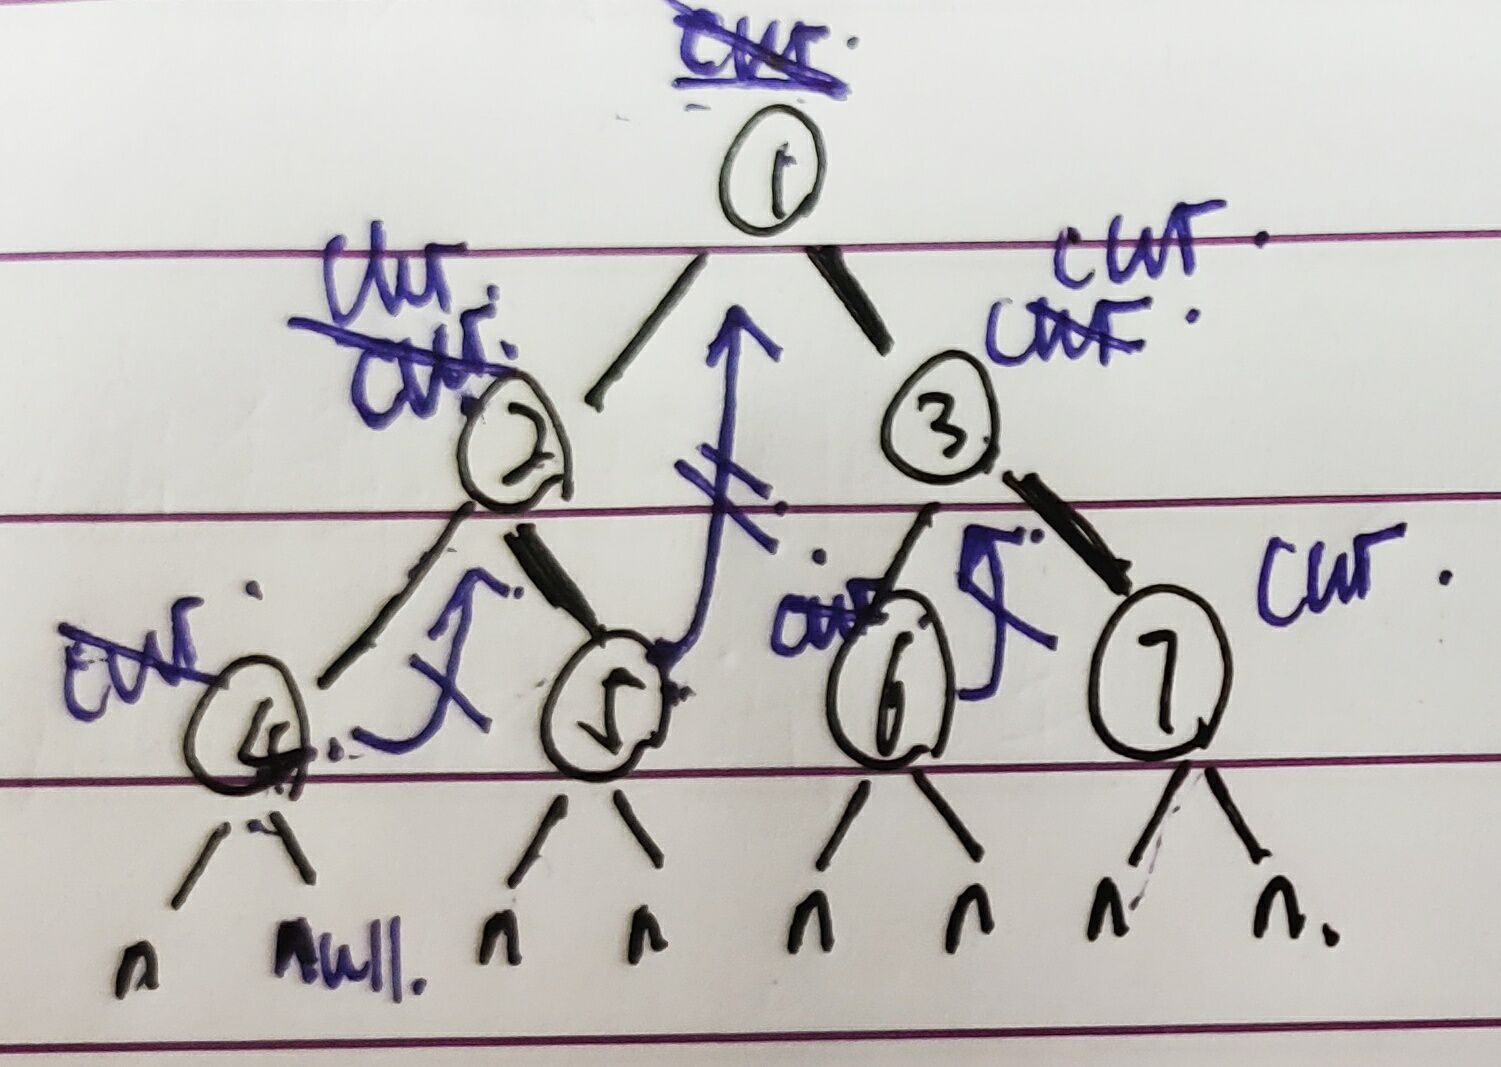 cur.
1
cur.
cur.
cur.
cur.
2
3
cur.
cur.
cur.
4
5
6
7
n
null.
n
n
n
n
n
n.